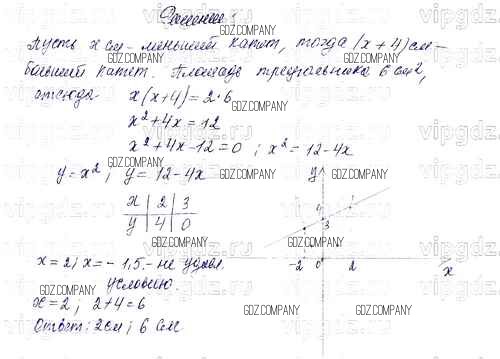 Решение:
Пусть x см - меньший катет, тогда (x + 4) см -
больший катет. Площадь треугольника 6 см²,
отсюда
x(x+4) = 2·6
x² + 4x = 12
x² + 4x - 12 = 0 ; x² = 12 - 4x
y = x² ; y = 12 - 4x
x 2 3
y 4 0
y
4
3
1
-2 0 2 x
x = 2; x = - 1,5 - не удовл.
условию.
x = 2 ; 2 + 4 = 6
Ответ: 2 см ; 6 см
vipgdz.ru
GDZ.COMPANY